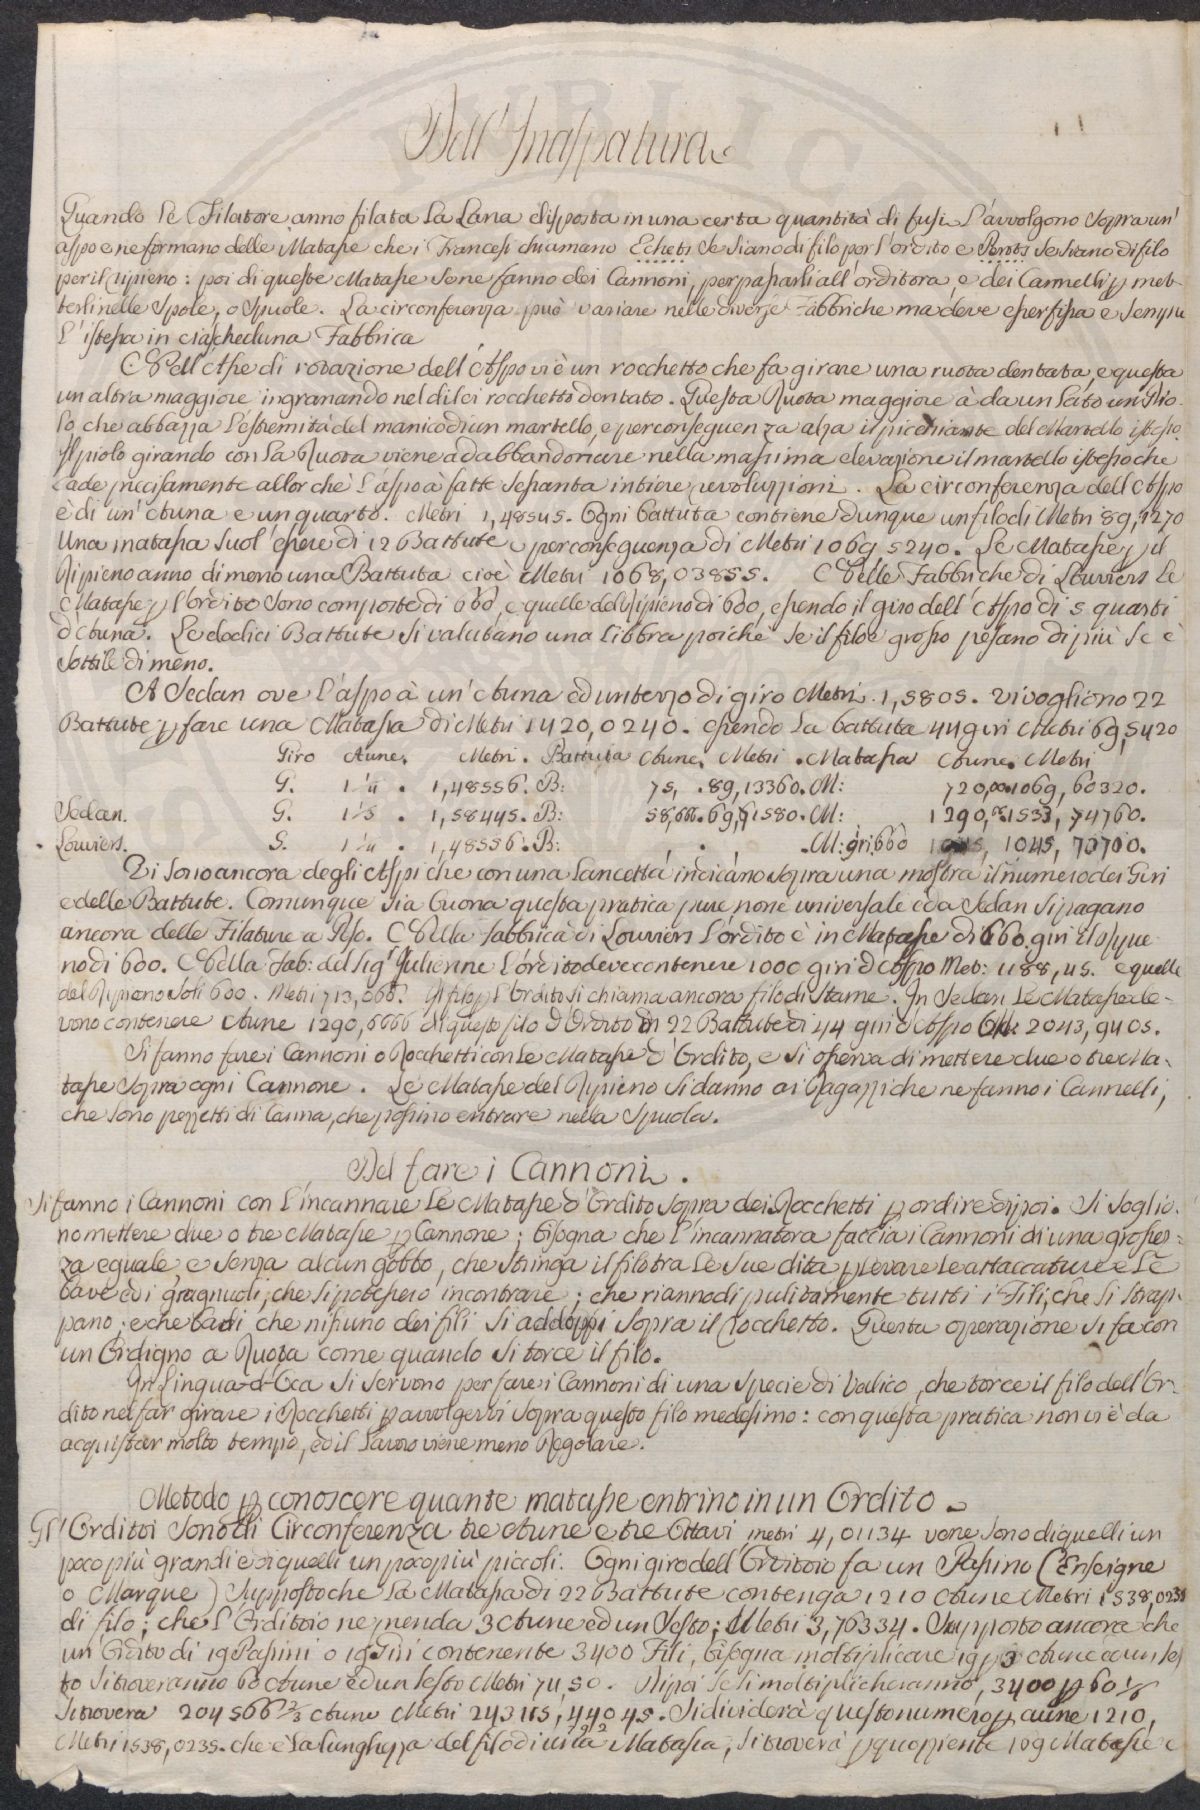 Dell' Inaspatura
Quando le Filatore anno filata la Lana disposta in una certa quantità di fusi l'avvolgono sopra un'
aspo e ne formano delle Matasse che i Francesi chiamano Echets se siano di filo per l'ordito e se siano di filo
per il ripieno: poi di queste Matasse se ne fanno dei Cannoni, per passarli all'orditora, e dei Cannelli p met-
terli nelle Spole, o Spuole. La circonferenza può variare nelle diverse Fabbriche ma deve esser fissa e sempre
l'istessa in ciascheduna Fabbrica
Nell'Asse di rotazione dell'Aspo vi è un rocchetto che fa girare una ruota dentata, e questa
un altra maggiore ingranando nel di lei rocchetto dentato. Questa Ruota maggiore à da un lato un Pio-
lo, che abbazza l'estremità del manico di un martello, e per conseguenza alza il picchiante del Martello istesso.
Il piolo girando con la Ruota viene ad abbandonare nella massima elevazione il martello istesso che
cade precisamente allor chè l'aspo à fatte sessanta intiere revoluzzioni. La circonferenza dell'Aspo
è di un' Auna e un quarto. Metri 1,48545. Ogni battuta contiene dunque un filo di Metri 89,1270
Una matassa suol' essere di 12 Battute e per conseguenza di Metri 1069 5240. Le Matasse p il
Ripieno anno di meno una Battuta cioè Metri 1068,03855. Nelle Fabbriche di Louviers le
Matasse p l'ordito sono composte di 660, e quelle del Ripieno di 600, essendo il giro dell'Aspo di 5 quarti
d'Auna. Le dodici Battute si valutano una libbra poichè se il filo è grosso pesano di più se è
sottile di meno.
A Sedan ove l'aspo à un' Auna ed un terzo di giro Metri 1,5805. vi vogliono 22
Battute p fare una Matassa di Metri 1420,0240. essendo la battuta 44 giri Metri 69,5420
Giro Aune. Metri. Battuta Aune. Metri. Matassa Aune. Metri
G. 1¼. 1,48556. B: 75, . 89,13360. M: 720,00. 1069, 60320.
Sedan. G. 1⅓. 1,58445. B: 58,666. 69,71580. M: 1290, 1533, 74760.
Louviers. G. 1¼. 1,48556. B: , . . M: giri 660 1045, 70700.
Vi sono ancora degli Aspi che con una lancetta indicano sopra una mostra il numero dei Giri
e delle Battute. Comunque sia buona questa pratica pure non è universale ed a Sedan si pagano
ancora delle Filature a Peso. Nella fabbrica di Louviers l'ordito è in Matasse di 660. giri il ripie-
no di 600. Nella Fab: del Sig.r Julienne l'ordito deve contenere 1000 giri d'Aspo Met: 1188,45. e quelle
del Ripieno soli 600. Metri 713,068. Il filo p l'Ordito si chiama ancora filo di Stame. In Sedan le Matasse de-
vono contenere Aune 1290,6666 di questo filo d'Ordito in 22 Battute di 44 giri d'Aspo 2043,9405.
Si fanno fare i Cannoni o Rocchetti con le Matasse d'Ordito, e si osserva di mettere due o tre Ma-
tasse sopra ogni Cannone. Le Matasse del Ripieno si danno ai Ragazzi che ne fanno i Cannelli,
che sono pezzetti di Canna, che possino entrare nella Spuola.
Del fare i Cannoni.
Si fanno i Cannoni con l'incannare le Matasse d'Ordito sopra dei Rocchetti p ordire di poi. Si soglio-
no mettere due o tre Matasse p Cannone; bisogna che l'incannatora faccia i Cannoni di una grossez-
za eguale, e senza alcun gobbo, che stringa il filo tra le sue dita p levare le attaccature e le
bave ed i gragnuoli, che si potessero incontrare; che riannodi pulitamente tutti i Fili, che si strap-
pano; e che badi che nissuno dei fili si addoppi sopra il rocchetto. Questa operazione si fa con
un Ordigno a Ruota come quando si torce il filo.
In Linguad'Oca si servono per fare i Cannoni di una specie di Valico, che torce il filo dell'Or-
dito nel far girare i Rocchetti p avvolgervi sopra questo filo medesimo: con questa pratica non vi è da
acquistar molto tempo, ed il lavoro viene meno Regolare.
Metodo p conoscere quante matasse entrino in un Ordito.
Gl' Orditoi sono di Circonferenza tre Aune e tre Ottavi metri 4,01134 vene sono di quelli un
poco più grandi e di quelli un poco più piccoli. Ogni giro dell'Orditoio fa un Passino (Enseigne
o Marque) Supposto che la Matassa di 22 Battute contenga 1210 Aune Metri 1538,0235
di filo; che l'Orditoio ne prenda 3 Aune ed un Sesto; Metri 3,76334. Supposto ancora che
un Ordito di 19 Passini o 19 Giri contenente 3400 Fili, bisogna moltiplicare 19 p 3 Aune e un ses
to si troveranno 60 Aune ed un sesto Metri 71,50. Di poi se si moltiplicheranno, 3400 p 60 1/6
si troverà 204566 2/3 Aune Metri 243115,44045. Si dividerà questo numero p aune 1210,
Metri 1538,0235. che è la lunghezza del filo di una Matassa, si troverà p quoziente 169 Matasse e